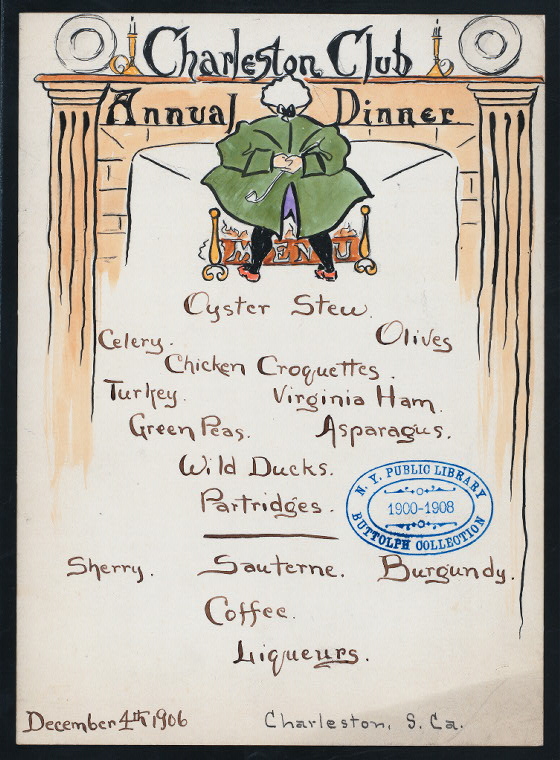 Charleston Club
Annual Dinner
MENU
Oyster Stew.
Celery. Olives
Chicken Croquettes.
Turkey. Virginia Ham.
Green Peas. Asparagus.
Wild Ducks.
Partridges.
N. Y. PUBLIC LIBRARY
1900-1908
BUTTOLPH COLLECTION
Sherry. Sauterne. Burgundy.
Coffee.
Liqueurs.
December 4th 1906 Charleston, S. Ca.